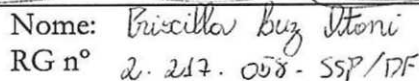 Nome: Priscilla Buz
RG nº 2.217.058-SSP/DF